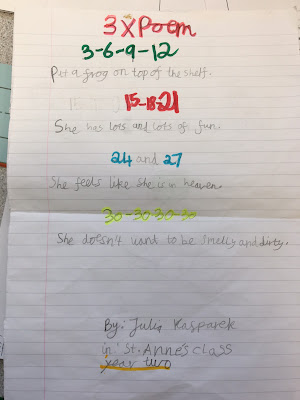 3 X Poem
3-6-9-12
Put a frog on top of the shelf.
15-18-21
She has lots and lots of fun.
24 and 27
She feels like she is in heaven.
30-30-30-30
She doesn't want to be smelly and dirty.
By: Julia Kasparek
in: St. Anne's class
year two